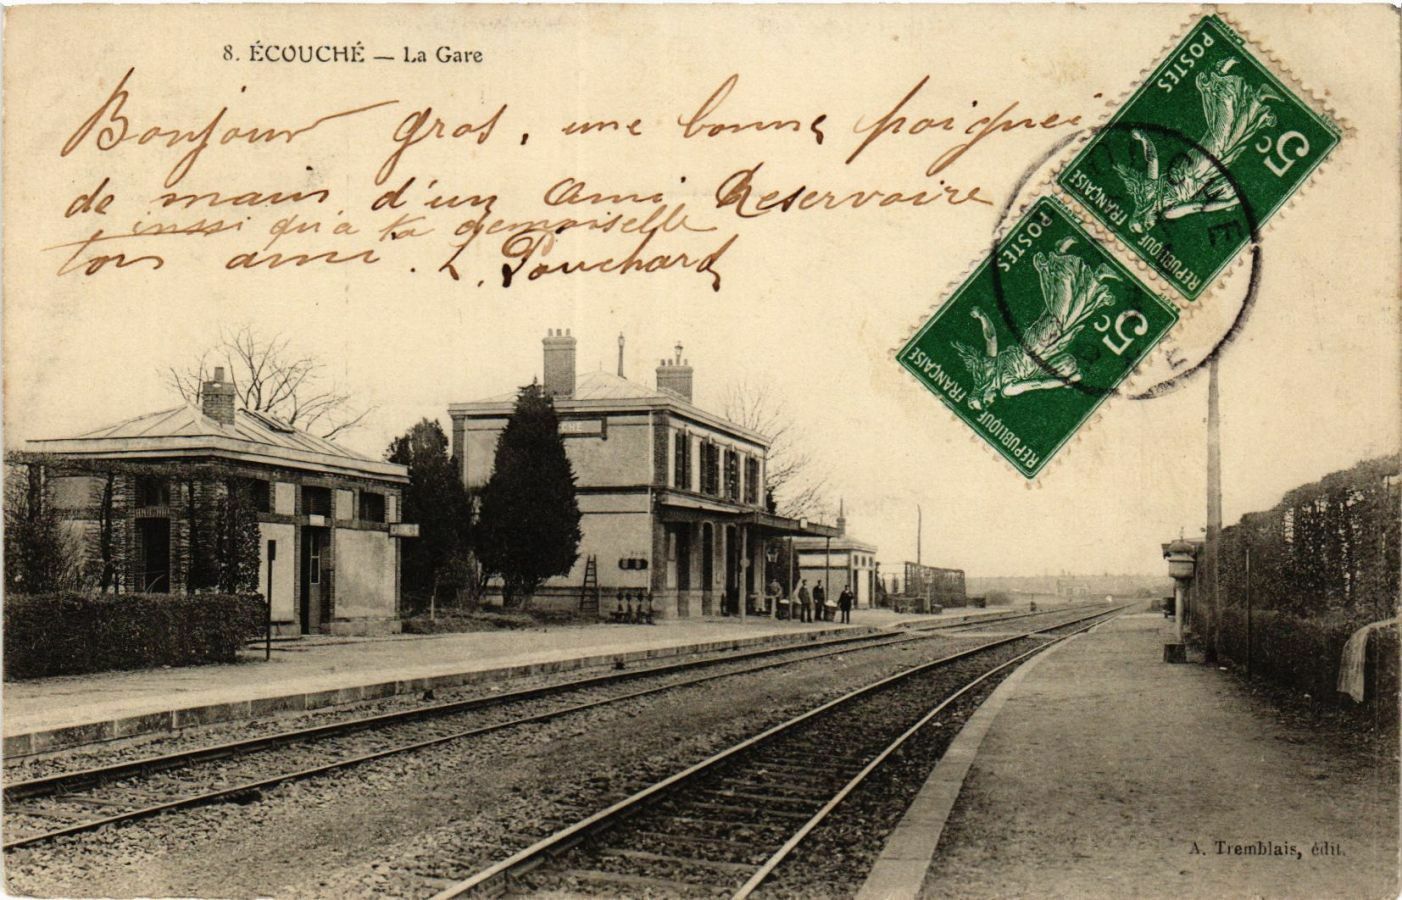 8. ÉCOUCHÉ — La Gare
Bonjour gros, une bonne poignei
de main d'un Ami Reservoire
inssi qu'a ta demoiselle
ton ami. L. Pouchard
POSTES
5c
RÉPUBLIQUE FRANÇAISE
POSTES
5c
RÉPUBLIQUE FRANÇAISE
OUCHE
CHÉ
A. Tremblais, édit.